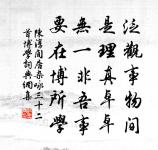 泛觀事物間
是理真卓卓
無一非吾事
要在博所學
陳淳閒居雜咏三十二
首博學詞典網集